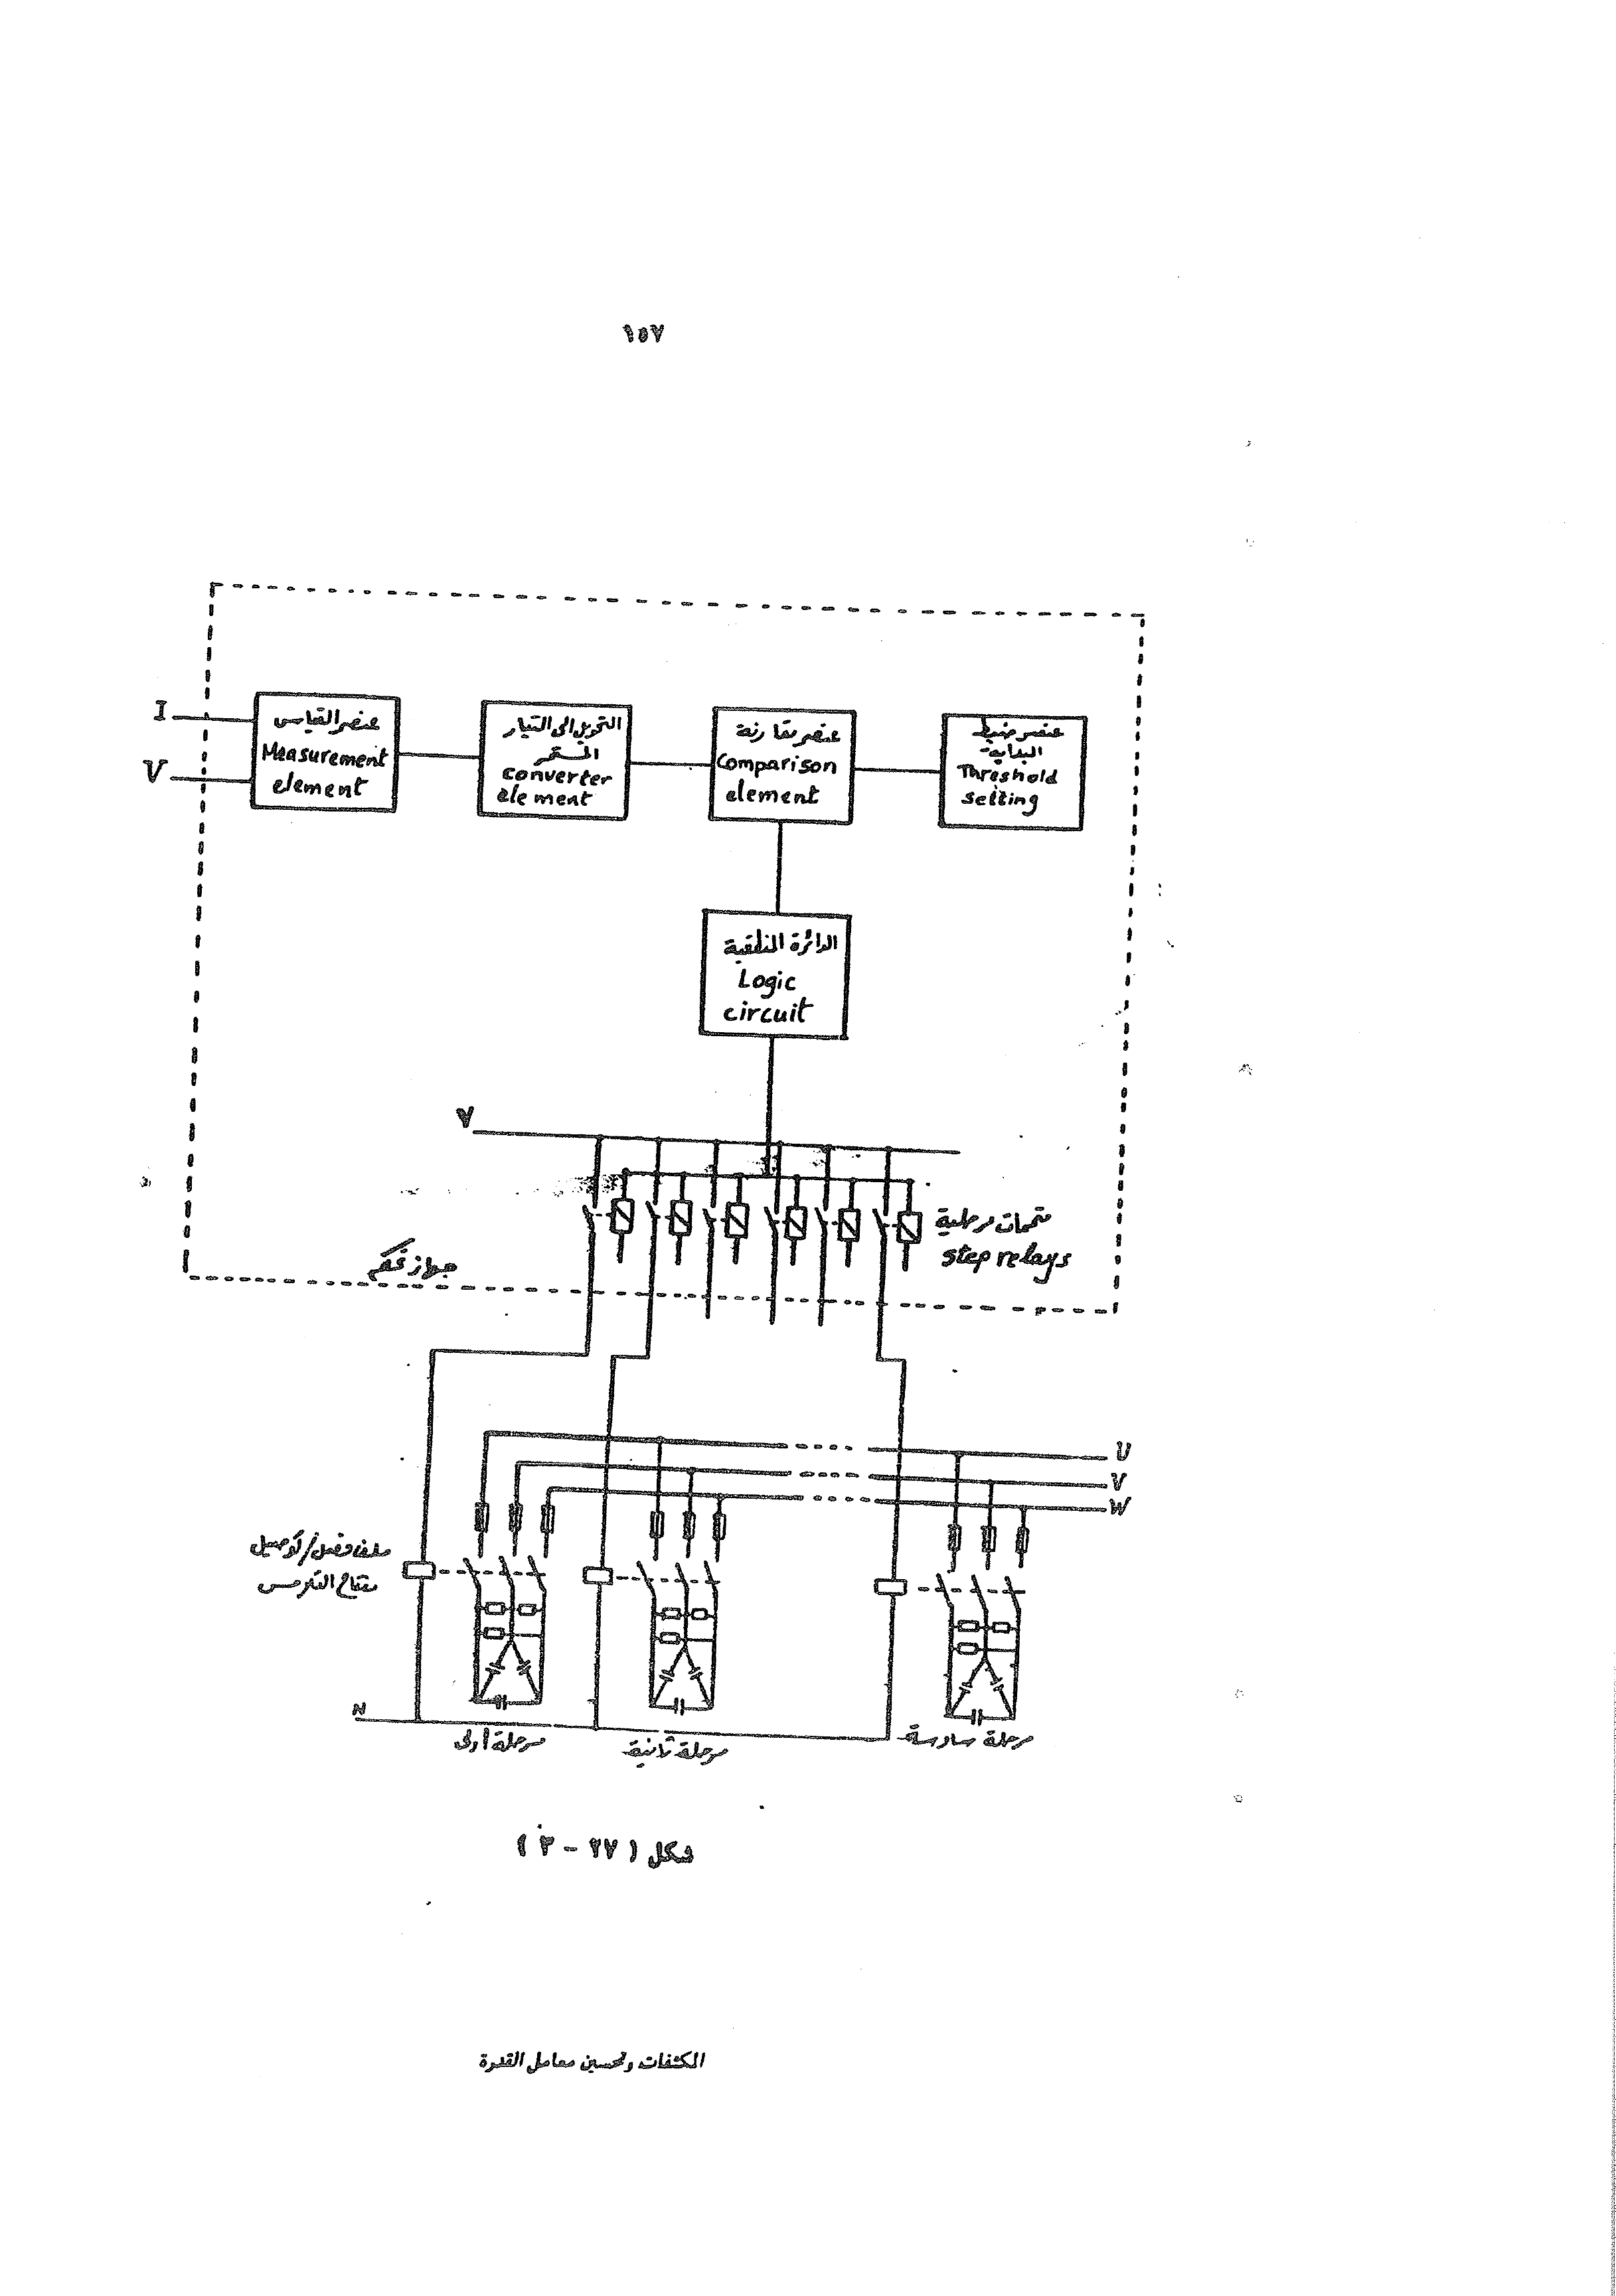 ١٥٧
I
V
عنصر القياس
Measurement
element
التحويل الى التيار
المستمر
converter
element
عنصر مقارنة
Comparison
element
عنصر ضبط
البداية
Threshold
setting
الدائرة المنطقية
Logic
circuit
V
متممات مرحلية
step relays
جهاز تحكم
U
V
W
ملف فصل/توصيل
مفتاح التلامس
N
مرحلة أولى
مرحلة ثانية
مرحلة سادسة
شكل (٢٧ - ٣)
المكثفات وتحسين معامل القدرة